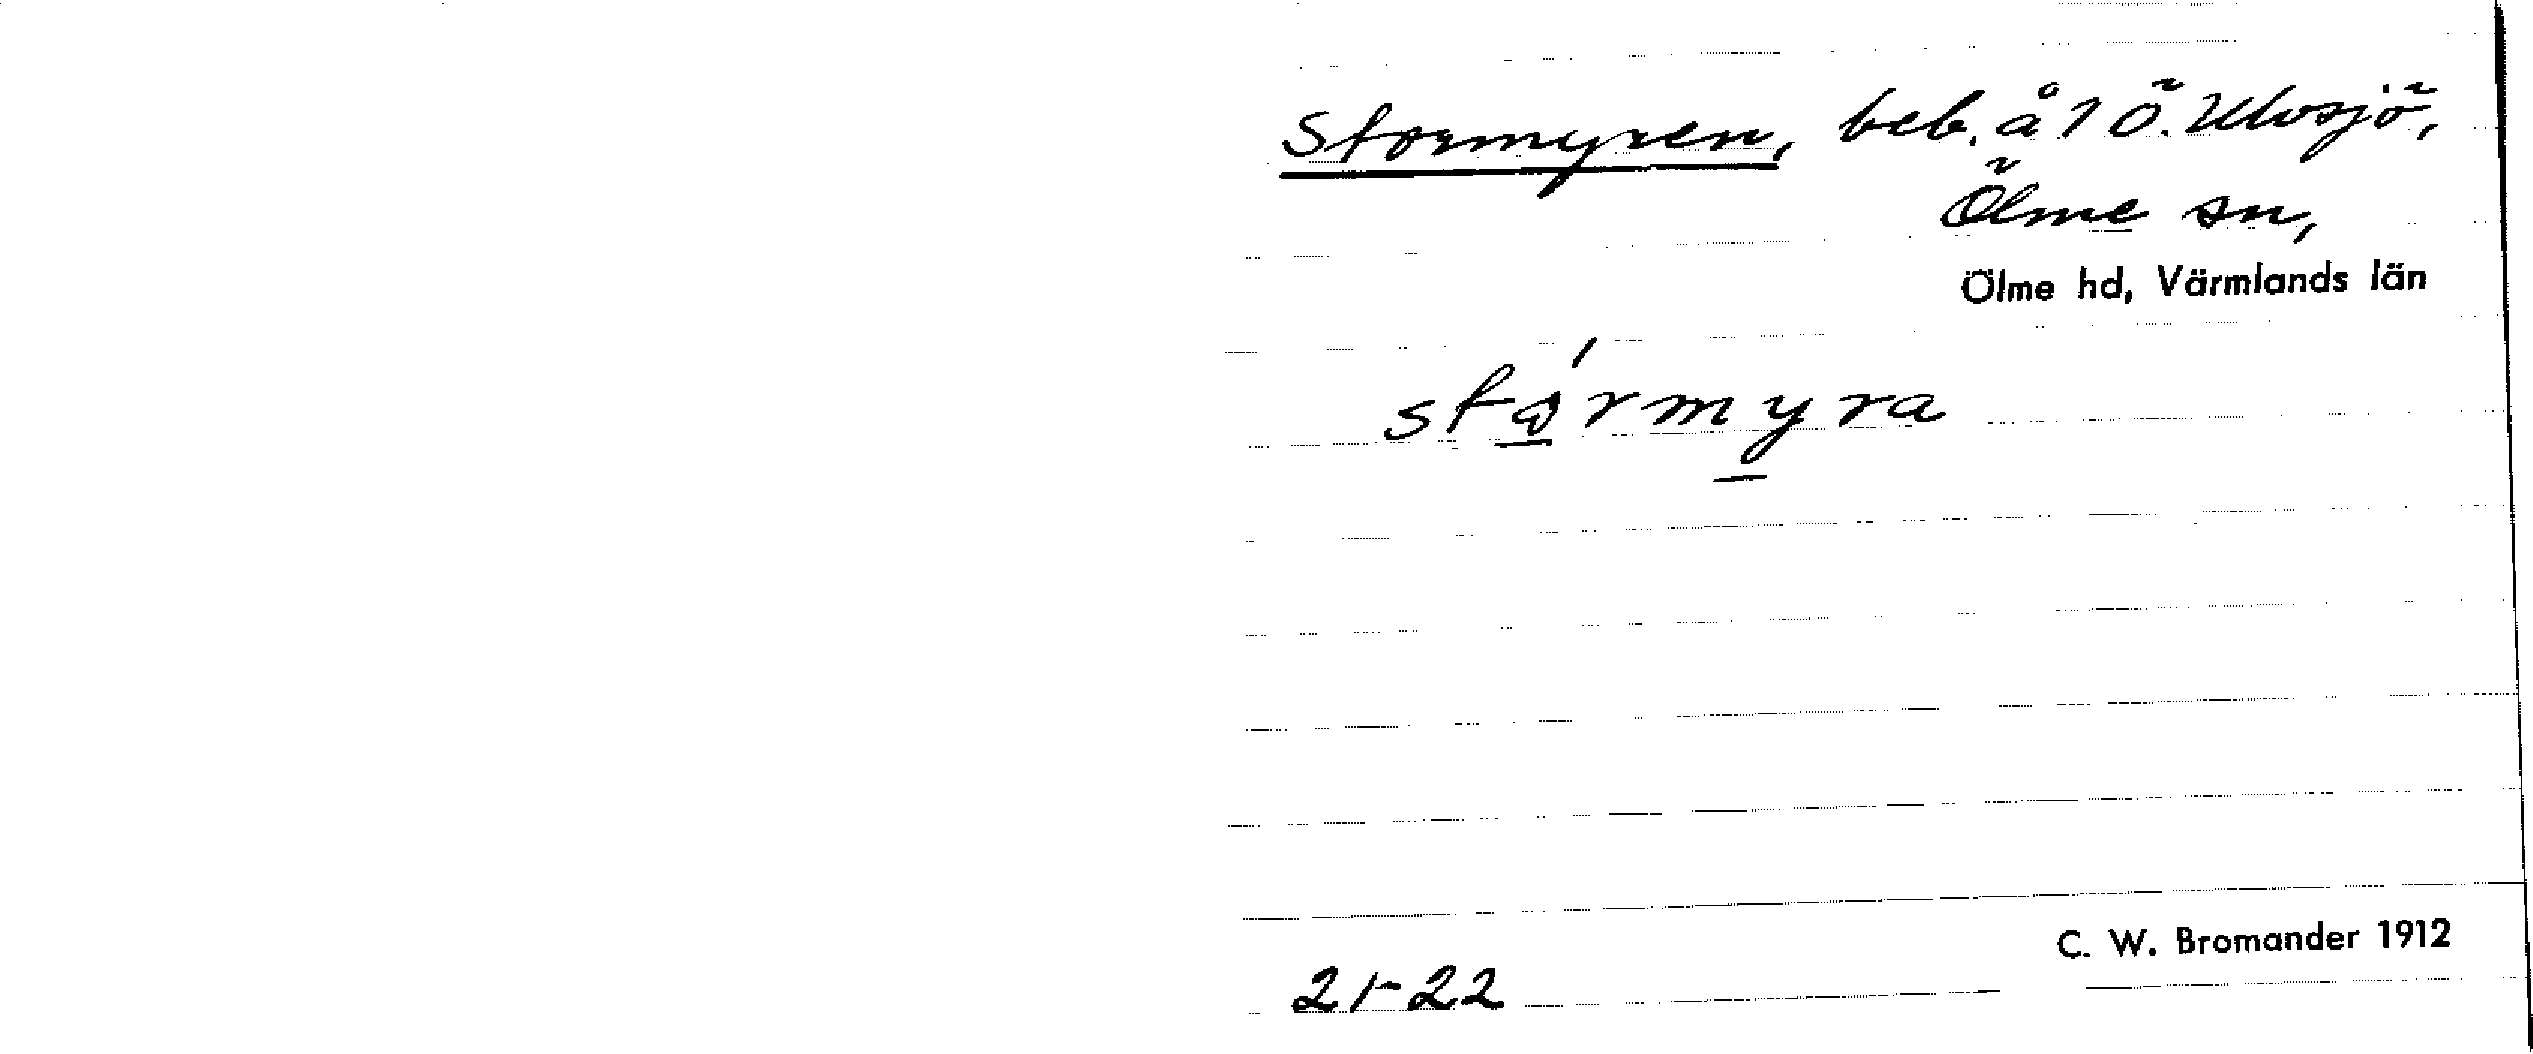 Stormyren, beb. å 1 Ö. Ulvsjö,
Ölme sn,
Ölme hd, Värmlands län
stó̱rmy̱ra
C. W. Bromander 1912
21-22